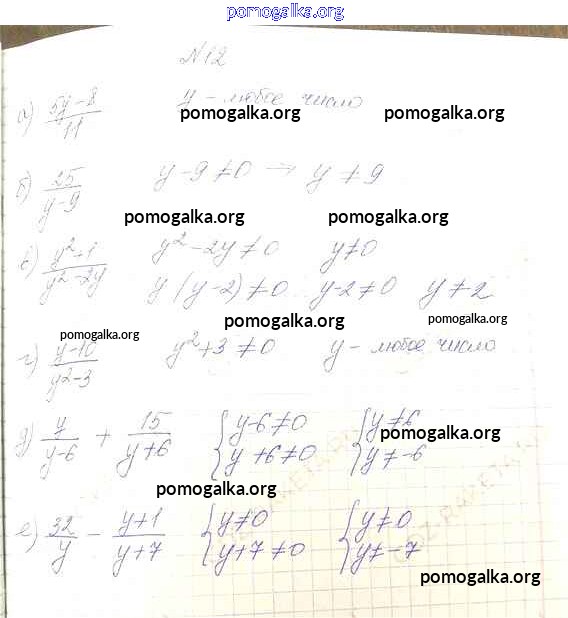 pomogalka.org
№12
а) (5y-8)/11 y - любое число
pomogalka.org pomogalka.org
б) 25/(y-9) y-9≠0 → y≠9
pomogalka.org pomogalka.org
в) (y²+1)/(y²-2y) y²-2y≠0 y≠0
y(y-2)≠0 y-2≠0 y≠2
pomogalka.org pomogalka.org pomogalka.org
г) (y-10)/(y²-3) y²+3≠0 y - любое число
д) y/(y-6) + 15/(y+6) {y-6≠0 {y≠6
y+6≠0 y≠-6
pomogalka.org
pomogalka.org
е) 32/y - (y+1)/(y+7) {y≠0 {y≠0
y+7≠0 y≠-7
pomogalka.org